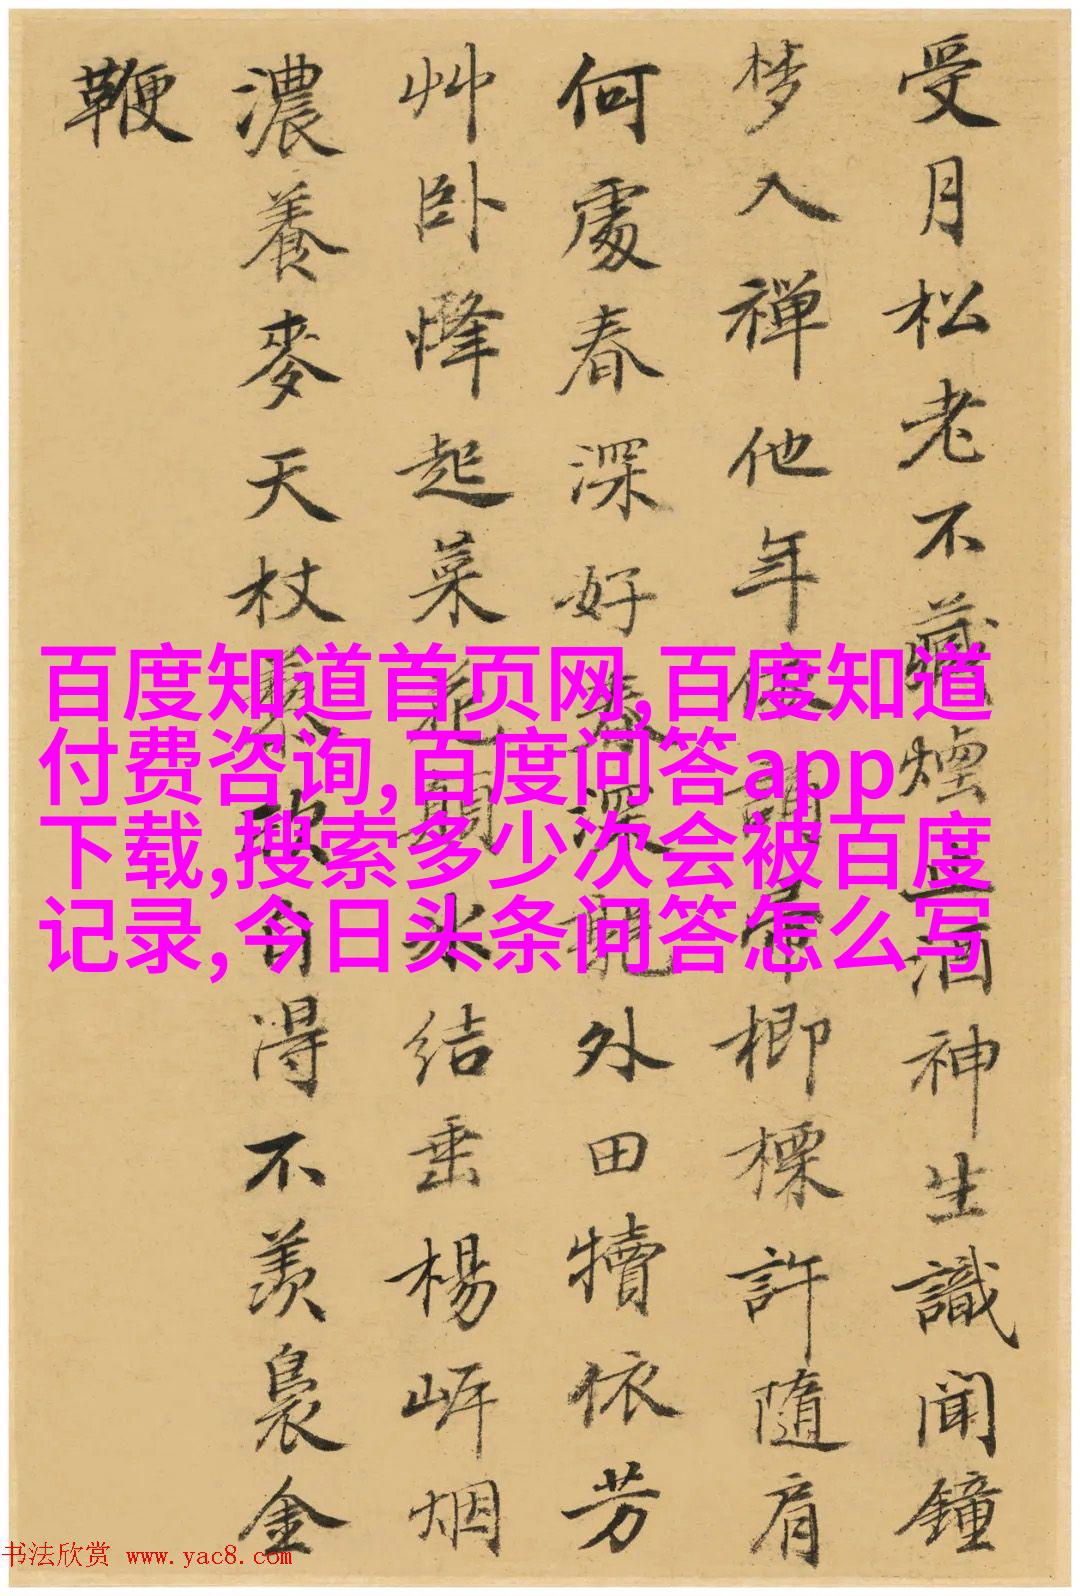 受月松老不藏煙神生識聞鐘
梦入禅他年楖標許隨肩
何處春深好春深外田犢依芳
艸卧烽起菜花頭水結垂楊岍烟
濃養麥天杖藜歌自得不羡裊金
鞭
百度知道首页网,百度知道
付费咨询,百度问答app
下载,搜索多少次会被百度
记录,今日头条问答怎么写
书法欣赏 www.yac8.com